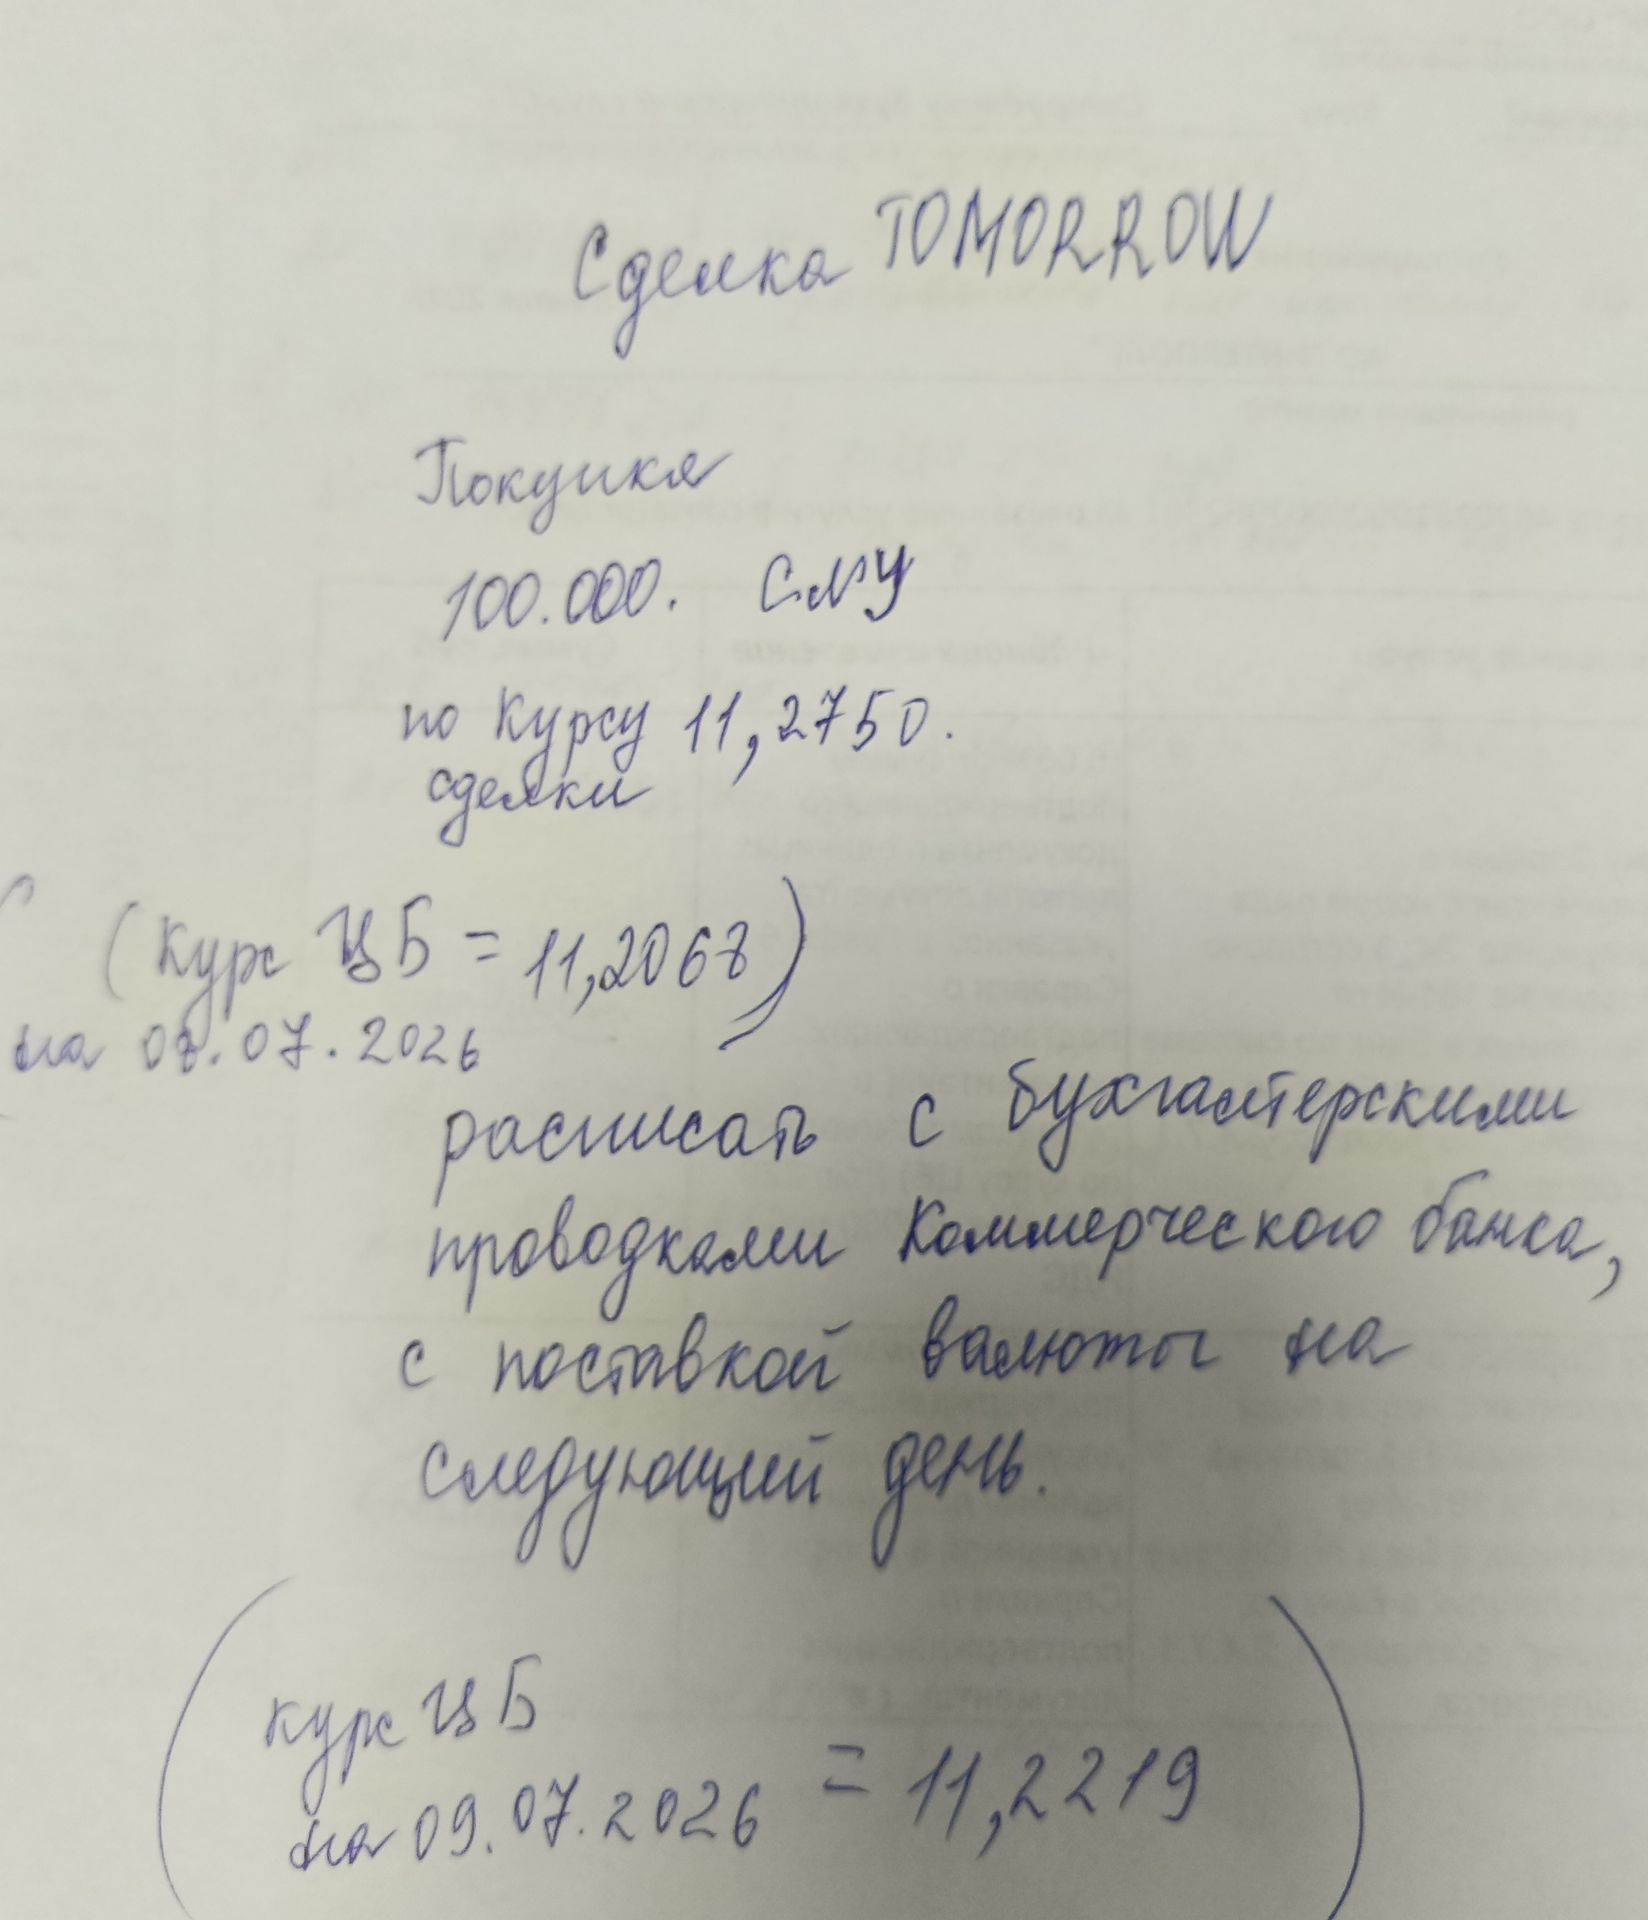 Сделка TOMORROW
Покупка
100.000. CNY
по курсу 11,2750.
сделки
(курс ЦБ = 11,2068)
на 08.07.2026
расписать с бухгалтерскими
проводками Коммерческого банка,
с поставкой валюты на
следующий день.
(курс ЦБ
на 09.07.2026 = 11,2219)